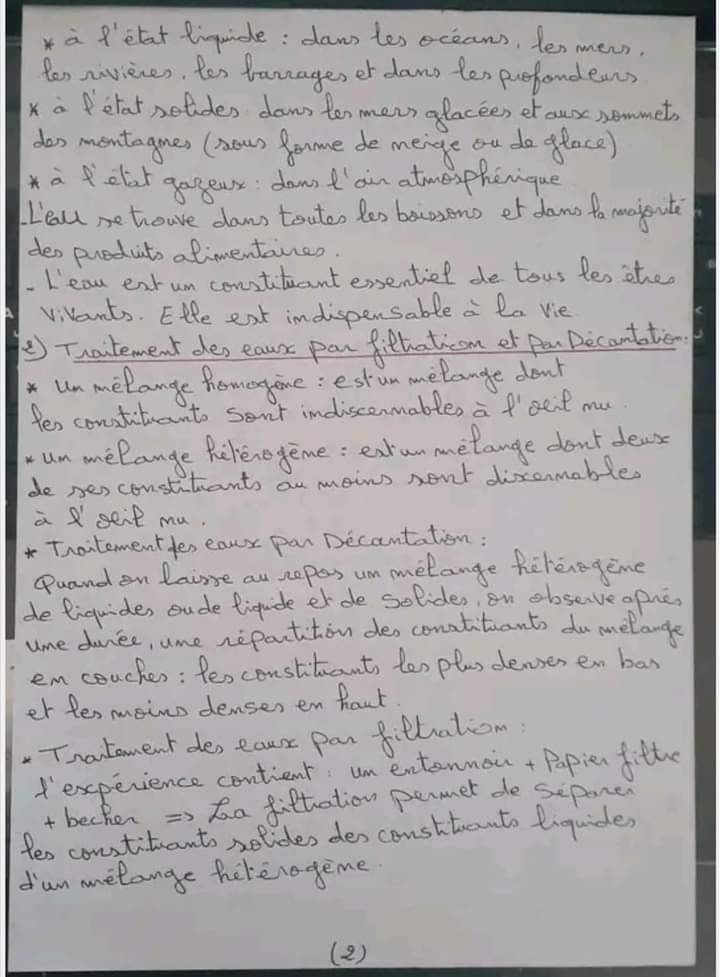 * à l'état liquide : dans les océans, les mers,
les rivières, les barrages et dans les profondeurs
* à l'état solides dans les mers glacées et aux sommets
des montagnes (sous forme de neige ou de glace)
* à l'état gazeux : dans l'air atmosphérique
- L'eau se trouve dans toutes les boissons et dans la majorité
des produits alimentaires.
- L'eau est un constituant essentiel de tous les êtres
vivants. Elle est indispensable à la vie
2) Traitement des eaux par filtration et par Décantation :
* Un mélange homogène : est un mélange dont
les constituants sont indiscernables à l'oeil nu.
* un mélange hétérogène : est un mélange dont deux
de ses constituants au moins sont discernables
à l'oeil nu.
* Traitement des eaux par Décantation :
Quand on laisse au repos un mélange hétérogène
de liquides ou de liquide et de solides, on observe après
une durée, une répartition des constituants du mélange
en couches : les constituants les plus denses en bas
et les moins denses en haut.
* Traitement des eaux par filtration :
l'expérience contient : un entonnoir + Papier filtre
+ becher => La filtration permet de séparer
les constituants solides des constituants liquides
d'un mélange hétérogène.
(2)